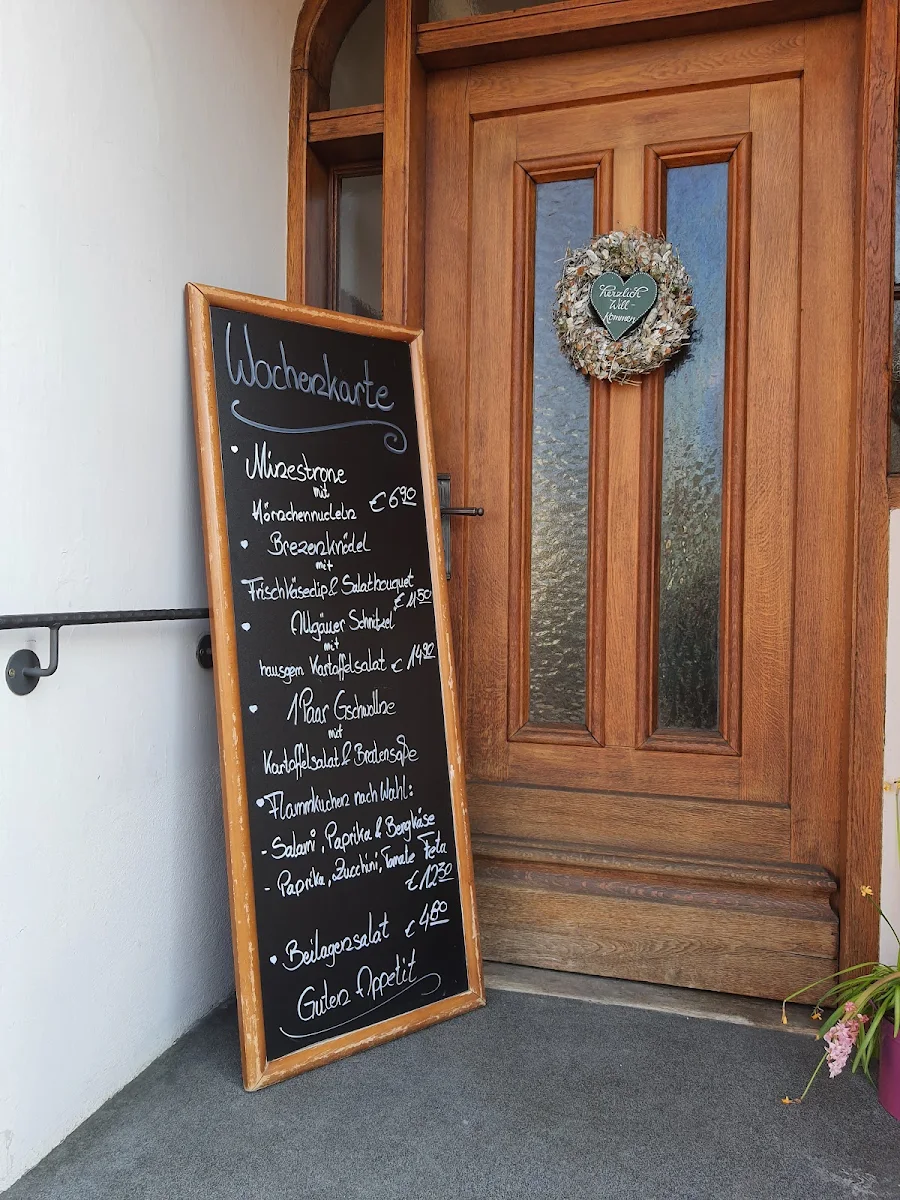 Herzlich
Will-
kommen
Wochenkarte
Minestrone
mit
Hörnchennudeln € 6.90
Brezenknödel
mit
Frischkäsedip & Salatbouquet
€ 11.50
Allgäuer Schnitzel
mit
hausgem. Kartoffelsalat € 14.90
1 Paar Gschwollne
mit
Kartoffelsalat & Bratensoße
Flammkuchen nach Wahl:
- Salami, Paprika & Bergkäse
- Paprika, Zucchini, Tomate Feta
€ 12.50
Beilagensalat € 4.80
Guten Appetit